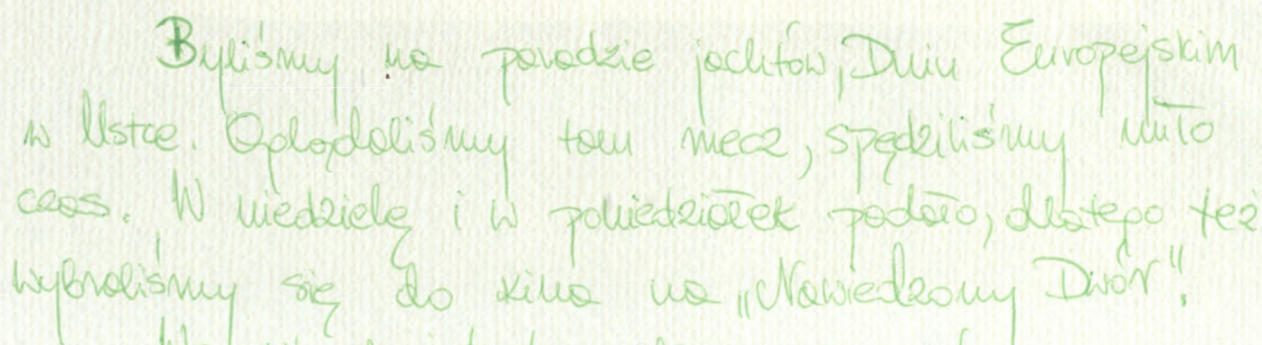 Byliśmy na paradzie jachtów, Dniu Europejskim
w Ustce. Oglądaliśmy tam mecz, spędziliśmy miło
czas. W niedzielę i w poniedziałek padało, dlatego też
wybraliśmy się do kina na „Nawiedzony Dwór".